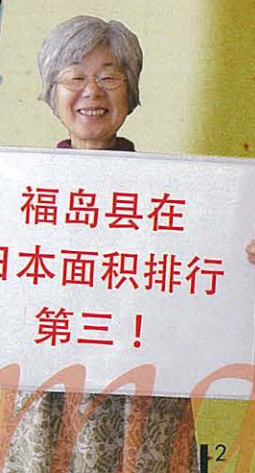 福岛县在
日本面积排行
第三！
2